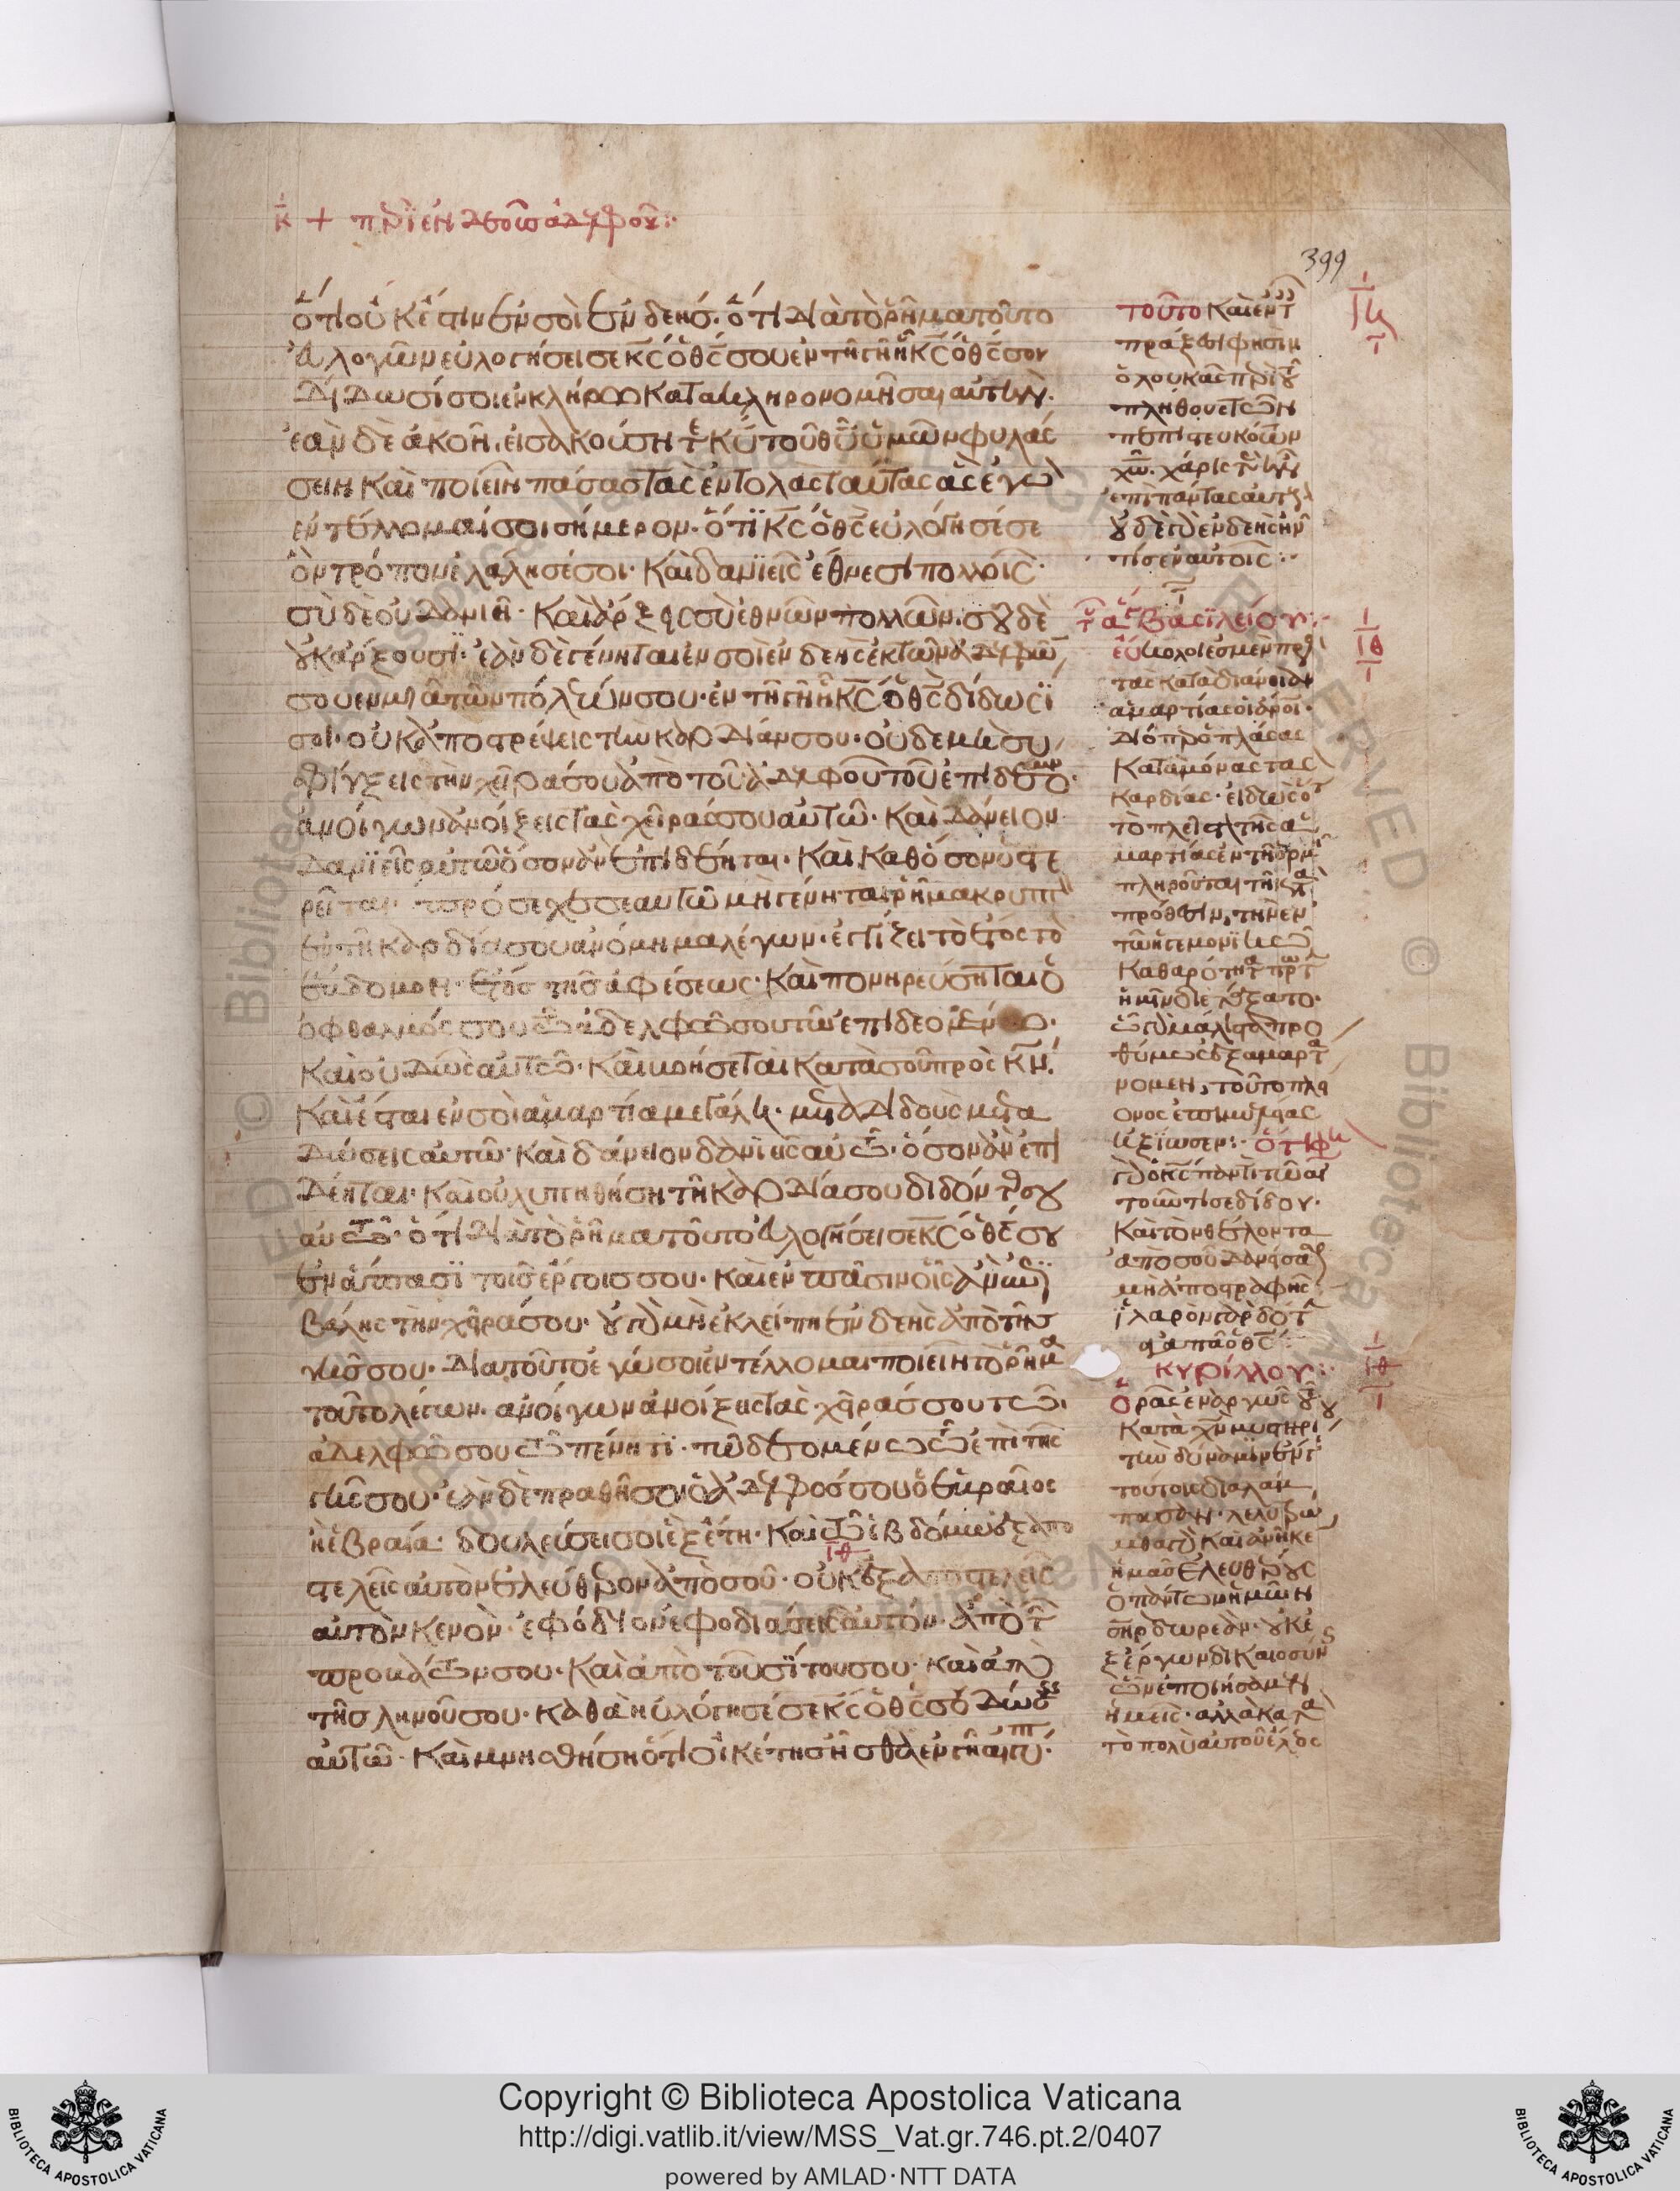 κ +
399
ὅτι οὐκ ἔστιν ἐν σοὶ ἐνδεής· ὅτι διὰ τὸ ῥῆμα τοῦτο
εὐλογῶν εὐλογήσει σε κς ὁ θς σου ἐν τῇ γῇ ᾗ κς ὁ θς σου
δίδωσί σοι ἐν κλήρω κατακληρονομῆσαι αὐτήν·
ἐὰν δὲ ἀκοῇ εἰσακούσητε κυ τοῦ θυ ὑμῶν φυλάσ
σειν καὶ ποιεῖν πάσας τὰς ἐντολὰς ταύτας ἃς ἐγὼ
ἐντέλλομαί σοι σήμερον· ὅτι κς ὁ θς εὐλόγησέ σε
ὃν τρόπον ἐλάλησέ σοι· καὶ δανιεῖς ἔθνεσι πολλοῖς·
σὺ δὲ οὐ δανιῇ· καὶ ἄρξεις σὺ ἐθνῶν πολλῶν· σου δὲ
οὐκ ἄρξουσι· ἐὰν δὲ γένηται ἐν σοὶ ἐνδεὴς ἐκ τῶν ἀδελφῶν
σου ἐν μιᾷ τῶν πόλεών σου· ἐν τῇ γῇ ᾗ κς ὁ θς δίδωσί
σοι· οὐκ ἀποστρέψεις τὴν καρδίαν σου· οὐδὲ μὴ συ
σφίγξεις τὴν χεῖρά σου ἀπὸ τοῦ ἀδελφοῦ τοῦ ἐπιδεομεν·
ἀνοίγων ἀνοίξεις τὰς χεῖράς σου αὐτῶ· καὶ δάνειον
δανιεῖς αὐτῶ ὅσον ἂν ἐπιδέηται· καὶ καθ' ὅσον ὑστε
ρεῖται· πρόσεχε σεαυτῶ μὴ γένηται ῥῆμα κρυπτ
ἐν τῇ καρδία σου ἀνόμημα λέγων· ἐγγίζει τὸ ἔτος τὸ
ἕβδομον· ἔτος τῆς ἀφέσεως· καὶ πονηρεύσηται ὁ
ὀφθαλμός σου τῶ ἀδελφῶ σου τῶ ἐπιδεομένω·
καὶ οὐ δώσεις αὐτῶ· καὶ βοήσεται κατὰ σοῦ πρὸς κν·
καὶ ἔσται ἐν σοὶ ἁμαρτία μεγάλη·
δώσεις αὐτῶ· καὶ δάνειον δανιεῖς αὐτῶ· ὅσον ἂν ἐπι
δέηται· καὶ οὐ λυπηθήση τῇ καρδία σου διδόντος σου
αὐτῶ· ὅτι διὰ τὸ ῥῆμα τοῦτο εὐλογήσει σε κς ὁ θς σου
ἐν ἅπασι τοῖς ἔργοις σου· καὶ ἐν πᾶσιν οἷς ἂν ἐπι
βάλης τὴν χεῖρά σου· οὐ γὰρ μὴ ἐκλείπη ἐνδεὴς ἀπὸ τῆς
γῆς σου· διὰ τοῦτο ἐγώ σοι ἐντέλλομαι ποιεῖν τὸ ῥῆμα
τοῦτο λέγων· ἀνοίγων ἀνοίξεις τὰς χεῖράς σου τῶ
ἀδελφῶ σου τῶ πένητι· τῶ δεομένω τῶ ἐπὶ τῆς
γῆς σου· ἐὰν δὲ πραθῇ σοι ὁ ἀδελφός σου ὁ ἑβραῖος
ἢ ἑβραία· δουλεύσει σοι ἓξ ἔτη· καὶ τῶ ἑβδόμω ἐξαπο
στελεῖς αὐτὸν ἐλεύθερον ἀπὸ σοῦ· οὐκ ἐξαποστελεῖς
αὐτὸν κενόν· ἐφόδιον ἐφοδιάσεις αὐτὸν· ἀπὸ τῶν
προβάτων σου· καὶ ἀπὸ τοῦ σίτου σου· καὶ ἀπὸ
τῆς ληνοῦ σου· καθὰ ηὐλόγησέ σε κς ὁ θς σου δώσεις
αὐτῶ· καὶ μνησθήση ὅτι οἰκέτης ἦσθα ἐν γῇ αἰγυπτ·
τοῦτο καὶ ἐν τ
πράξεσι φησὶν
πλήθους τῶν
πεπιστευκότων
χάρις τε ἦν
ἐπὶ πάντας αὐτούς
οὐδὲ γὰρ ἐνδεὴς ἦν
τις ἐν αὐτοῖς:·
τοῦ α βασιλείου:·
τὰς κατὰ διάνοιαν
ἁμαρτίας
διὸ ὁ πλάσας
καταμόνας τὰς
καρδίας· εἰδὼς ὅτι
τὸ πλεῖστον τῆς ἁ
μαρτίας ἐν τῇ ὁρμῇ
πληροῦται τῇ κατὰ
πρόθεσιν, τὴν ἐν
τῶ ἡγεμονικῶ
καθαρότητα πρώτην
ἡμῖν διετάξατο·
ὧ γὰρ μάλιστα προ
θύμως ἐξαμαρτά
νομεν, τοῦτο πλεί
ονος ἐπιμελείας
ἠξίωσεν:·
τὸ πισε δίδου·
καὶ τὸν θέλοντα
ἀπὸ σοῦ δανείσασθαι
μὴ ἀποστραφῇς·
ἱλαρὸν γὰρ δότην
ἀγαπᾷ ὁ θς:·
κυρίλλου:·
ὁρᾷς ἐναργῶς
κατὰ χν μυστηρίου
τὴν δύναμιν ἐν
τούτοις διαλάμ
πουσαν· λελυτρώ
μεθα γὰρ καὶ ἀνῆκε
ἡμᾶς ἐλευθέρους
ὁ πάντων ἡμῶν
σηρ δωρεάν· οὐκ ἐ
ξ ἔργων δικαιοσύνης
ὧν ἐποιήσαμεν
ἡμεῖς· ἀλλὰ κατὰ
τὸ πολὺ αὐτοῦ ἔλεος
ιη
ιθ
ιθ
ιθ
Copyright © Biblioteca Apostolica Vaticana
http://digi.vatlib.it/view/MSS_Vat.gr.746.pt.2/0407
powered by AMLAD·NTT DATA
BIBLIOTECA APOSTOLICA VATICANA
BIBLIOTECA APOSTOLICA VATICANA